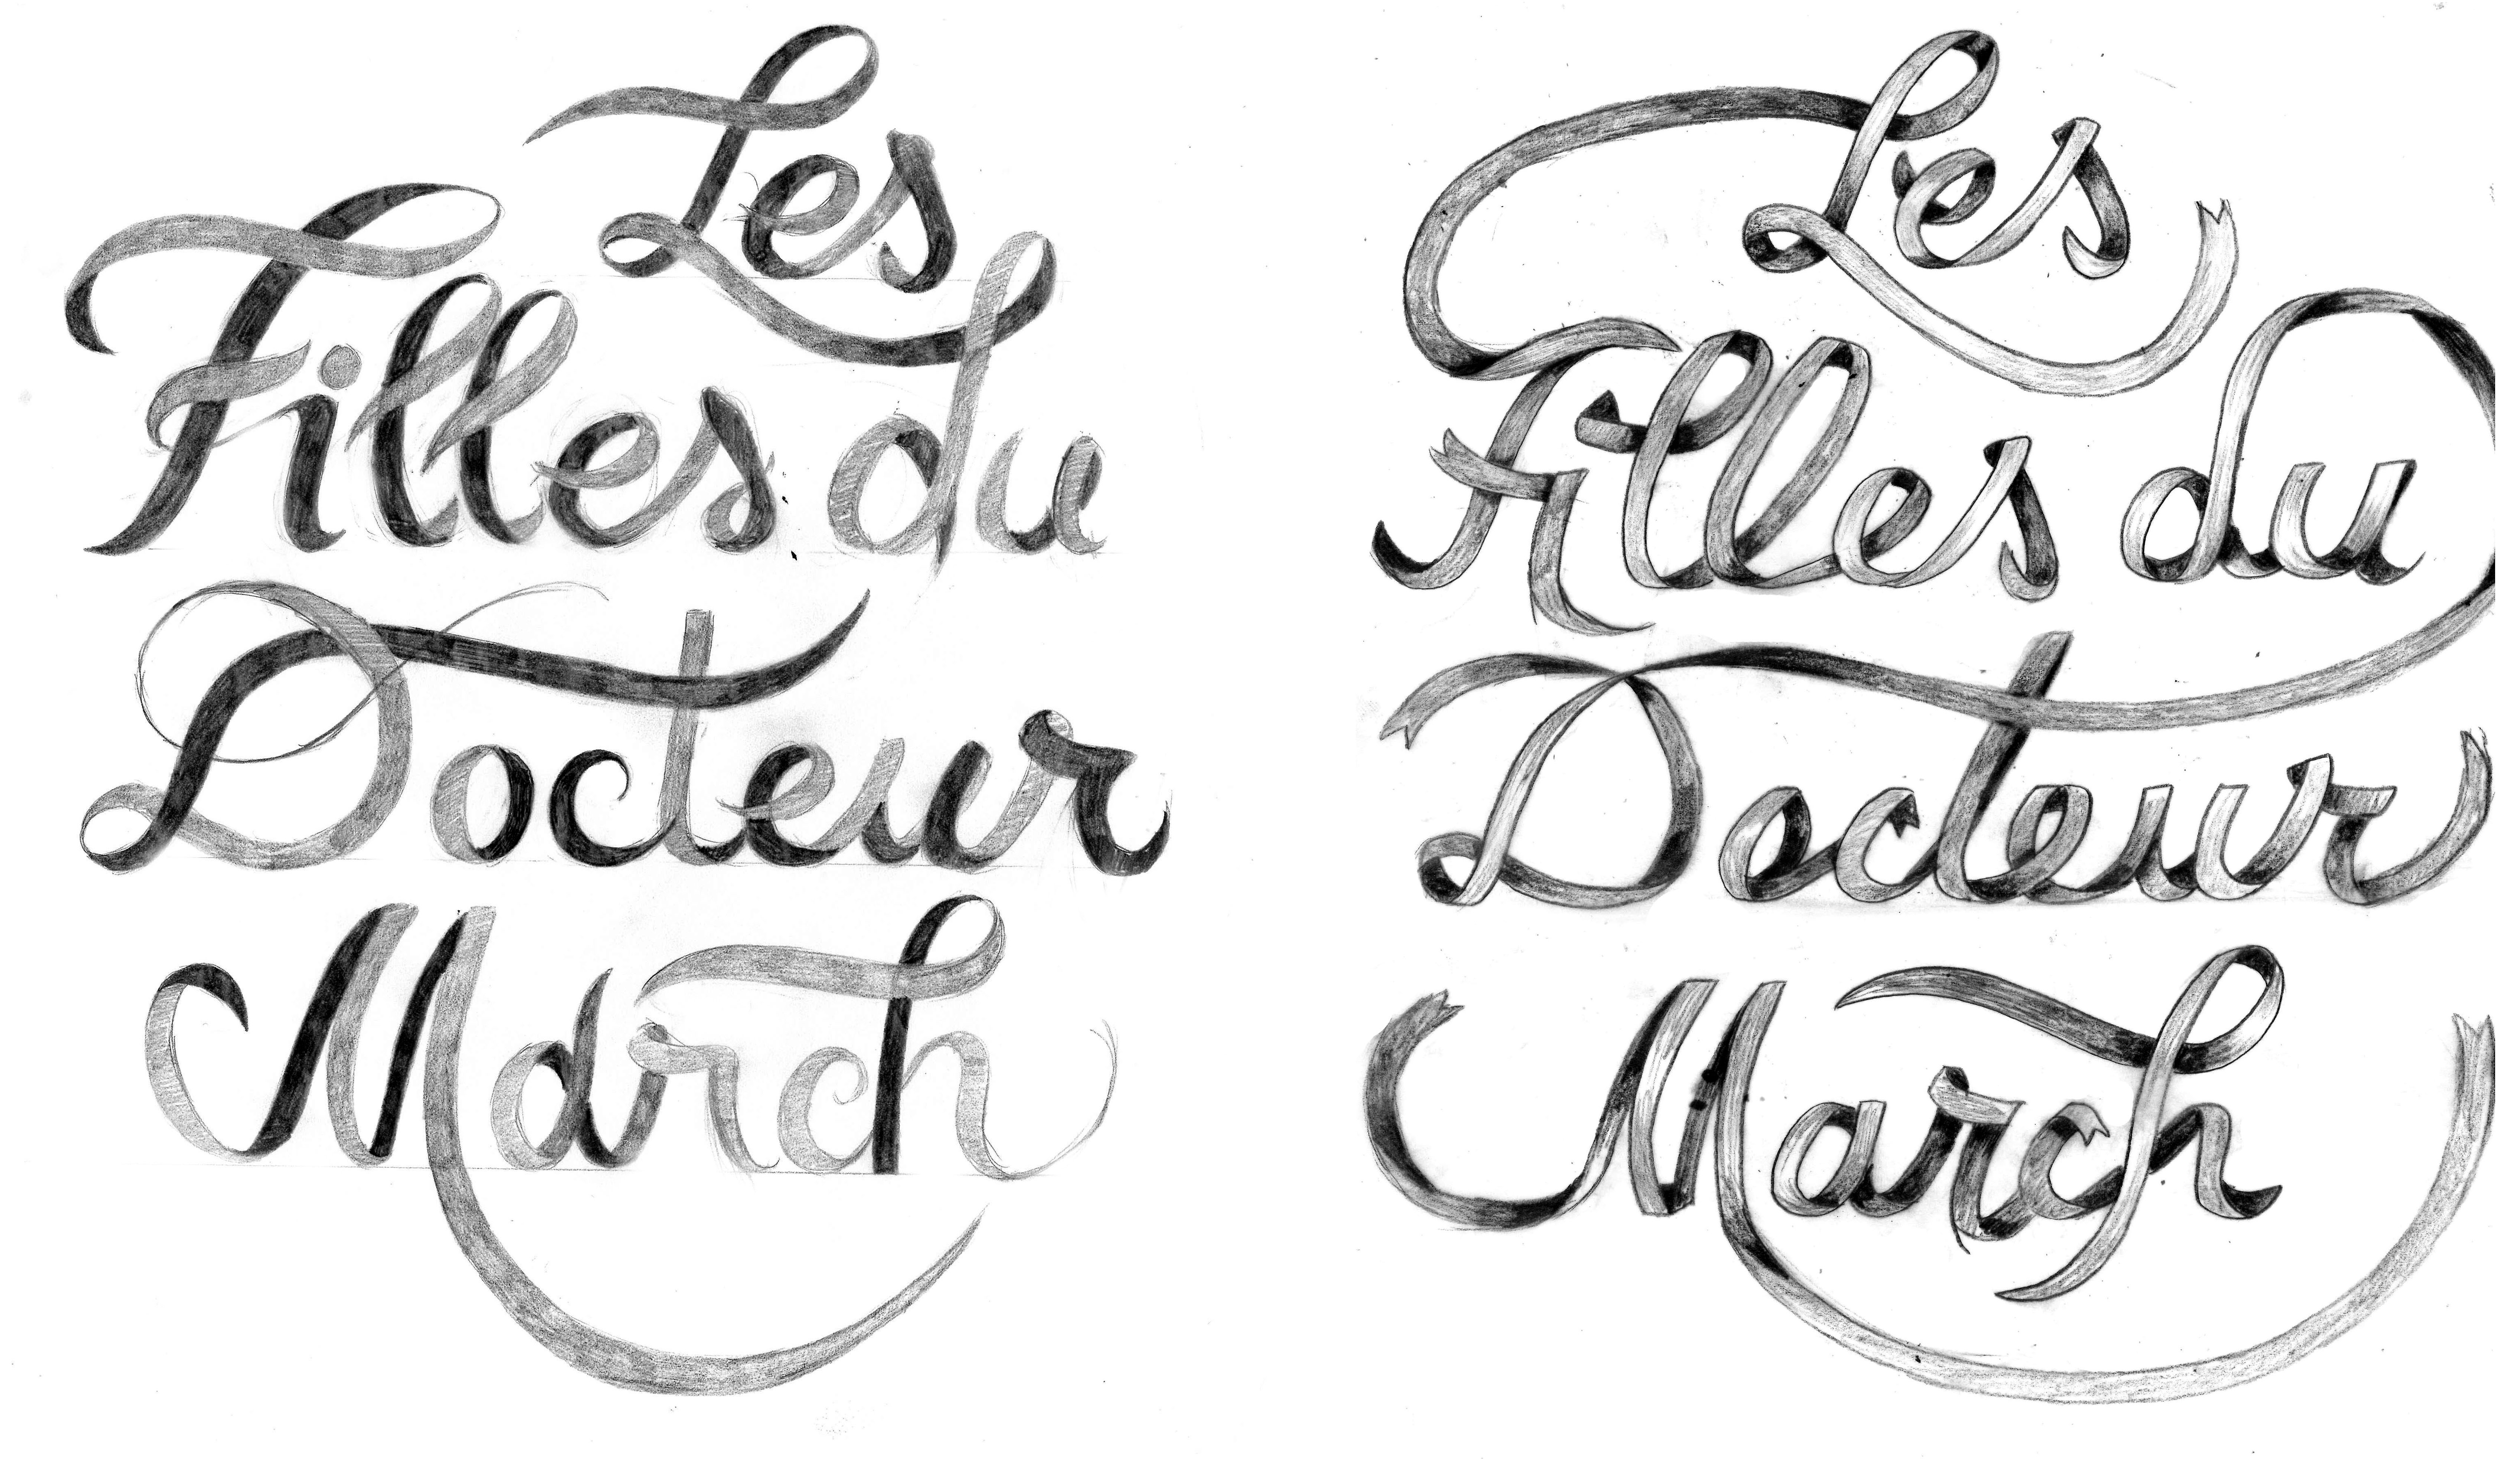 Les
Filles du
Docteur
March
Les
Filles du
Docteur
March